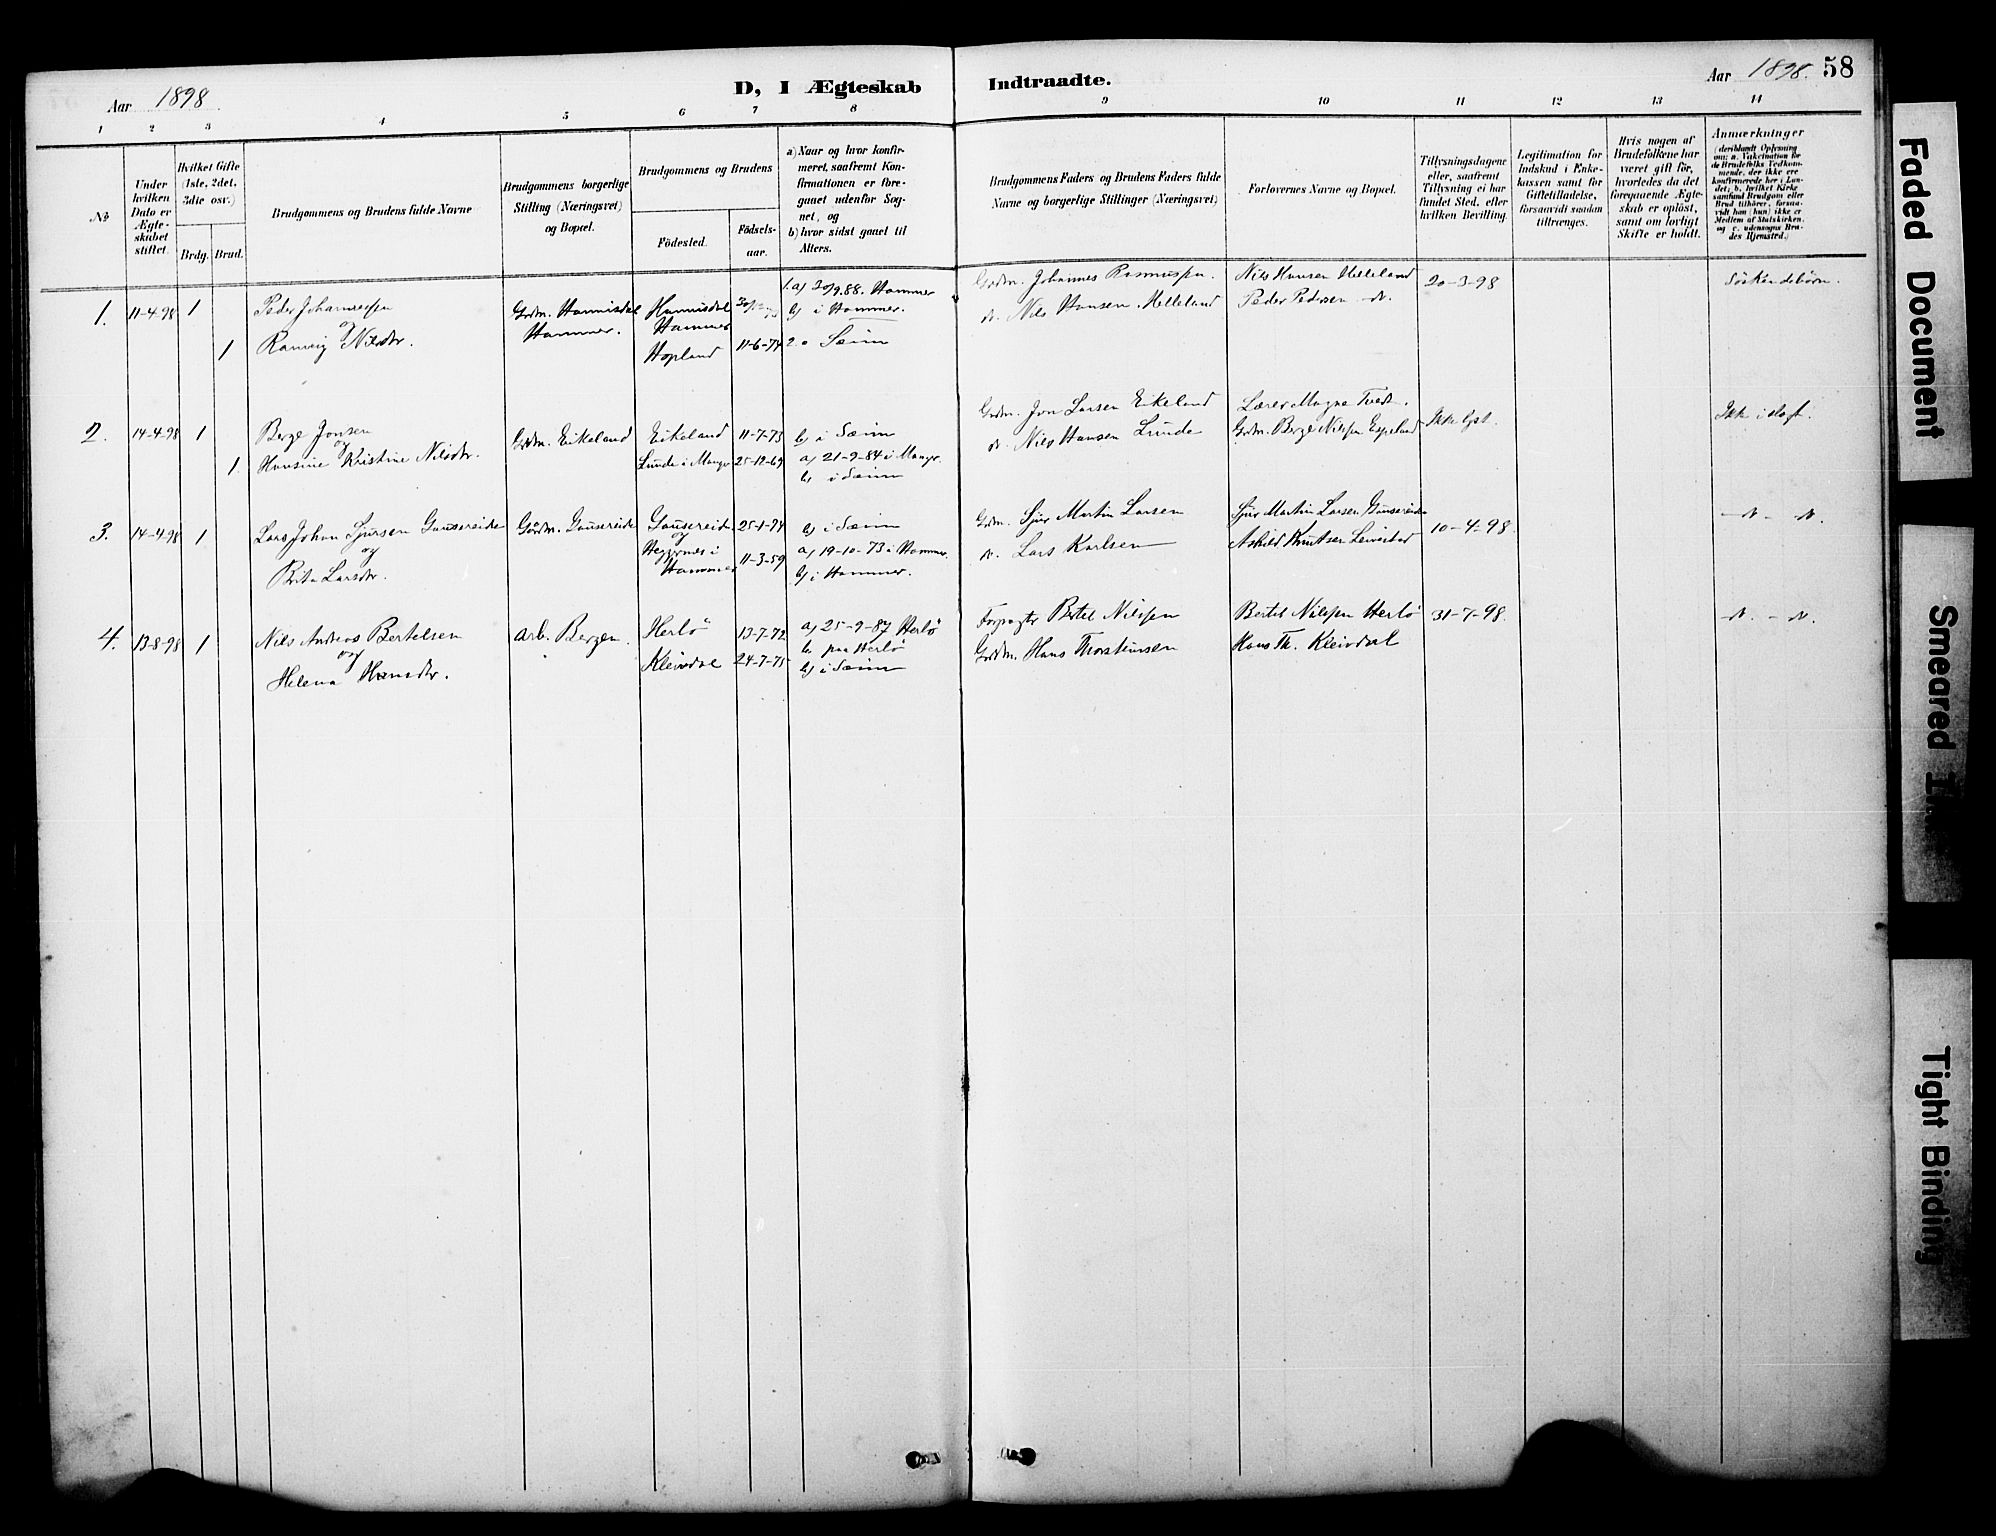 Aar 1898
D, I Ægteskab Indtraadte.
Aar 1898. 58
1 2 3 4 5 6 7 8 9 10 11 12 13 14
№
Under hvilken Dato er Ægteskabet stiftet.
Hvilket Gifte (1ste, 2det, 3die osv.)
Brdg. Brud.
Brudgommens og Brudens fulde Navne
Brudgommens borgerlige Stilling (Næringsvei) og Bopæl.
Brudgommens og Brudens
Födested.
Födselsaar.
a) Naar og hvor konfirmeret, saafremt Konfirmationen er foregaaet udenfor Sognet, og
b) hvor sidst gaaet til Alters.
Brudgommens Faders og Brudens Faders fulde Navne og borgerlige Stillinger (Næringsvei)
Forlovernes Navne og Bopæl.
Tillysningsdagene eller, saafremt Tillysning ei har fundet Sted, efter hvilken Bevilling.
Legitimation for Indskud i Enkekassen samt for Giftetilladelse, forsaavidt saadan tiltrænges.
Hvis nogen af Brudefolkene har været gift för, hvorledes da det foregaaende Ægteskab er oplöst, samt om lovligt Skifte er holdt.
Anmærkninger
(deriblandt Oplysning om: a. Vakcination for de Brudefolks Vedkommende, der ikke ere konfirmerede her i Landet; b. hvilket Kirkesamfund Brudgom eller Brud tilhörer, forsaavidt han (hun) ikke er Medlem af Statskirken, og c. udensogns Brudes Hjemsted.)
1. 11-4-98 1 Peder Johannessen
og
1 Ranveig Nilsdtr.
Grdm. Hannisdal
Hammer.
Hannisdal
Hammer
Hopland 11-6-74
1. a) 30/9.88. Hammer
b) i Hammer.
2. " Sæim
Grdm. Johannes Rasmussen.
" Nils Hansen Helleland
Nils Hansen Helleland
Peder Pedersen
20-3-98
Söskendebörn.
2. 14-4-98 1 Berge Jonsen
og
1. Hansine Kristine Nilsdtr.
Grdm. Eikeland
Eikeland 11-7-73
Lunde i Manger 25-12-69
b) i Sæim
a) 21-9-84 i Manger.
b) i Sæim
Grdm. Jon Larsen Eikeland
" Nils Hansen Lunde
Lærer Magne Tvedt.
Grdm. Berge Nilssen Espeland
Ikke lyst.
Ikke i slægt.
3. 14-4-98 1 Lars Johan Sjursen Gausereide
og
Brita Larsdtr.
Gårdm. Gausereide
Gausereide
og
i
Hammer
25-1-74
11-3-59
b) i Sæim
a) 19-10-73 i Hammer.
b) i Hammer.
Grdm. Sjur Martin Larsen
" Lars Karlsen
Sjur Martin Larsen Gausereide
Askild Knutsen Leivestad
10-4-98.
4. 13-8-98 1 Nils Andreas Bertelsen
og
Helena Hansdtr.
Arb. Bergen.
Herlö 13-7-72
Kleivdal 24-7-75
a) 25-9-87 Herlö
b) paa Herlö
b) i Sæim
Forpagter Bertel Nilssen
Grdm. Hans Thorsteinsen
Bertel Nilssen Herlö
Hans Th. Kleivdal
31-7-98.
Faded Document
Smeared
Tight Binding